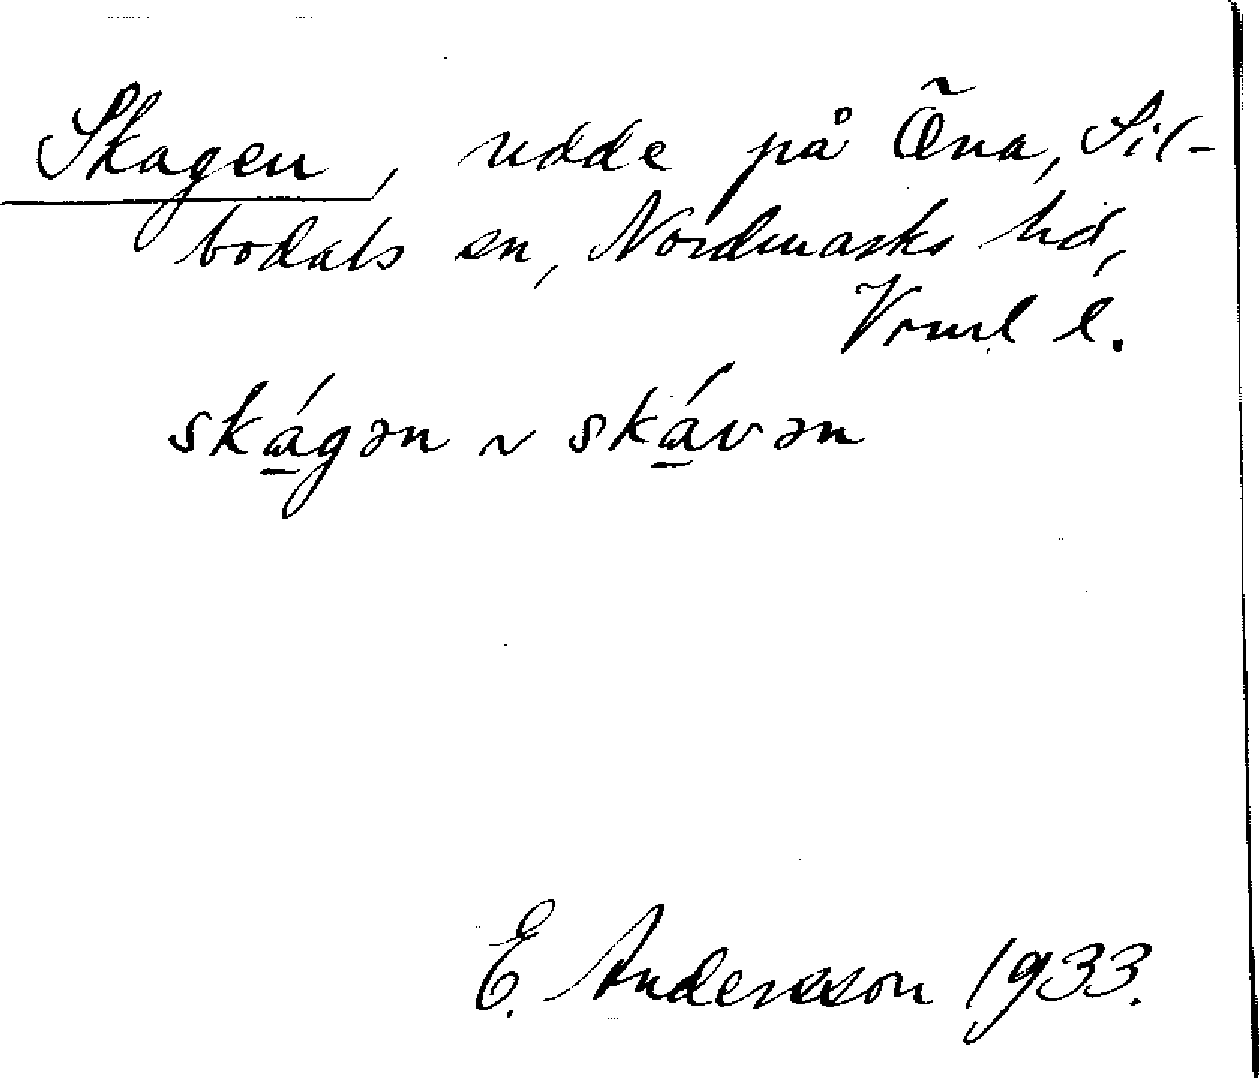 Skagen, udde på Õna, Sil-
bodals sn, Nordmarks hd,
Vrml l.
skágən ~ skávən
E. Andersson 1933.